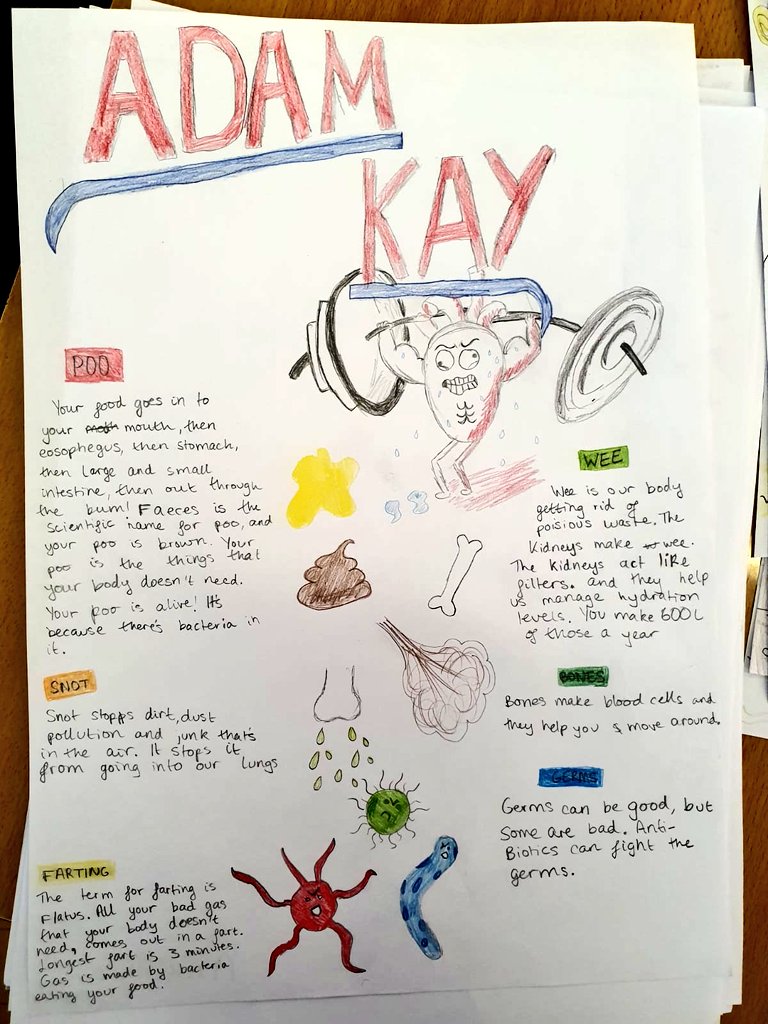 ADAM
KAY
POO
Your food goes in to
your mouth, then
eosophegus, then stomach,
then large and small
intestine, then out through
the bum! Faeces is the
scientific name for poo, and
your poo is brown. Your
poo is the things that
your body doesn't need.
Your poo is alive! It's
because there's bacteria in
it.
WEE
Wee is our body
getting rid of
poisious waste. The
Kidneys make wee.
The kidneys act like
filters. and they help
us manage hydration
levels. You make 600L
of those a year
SNOT
Snot stopps dirt, dust
pollution and junk that's
in the air. It stops it
from going into our lungs
BONES
Bones make blood cells and
they help you & move around.
GERMS
Germs can be good, but
some are bad. Anti-
Biotics can fight the
germs.
FARTING
The term for farting is
Flatus. All your bad gas
that your body doesn't
need, comes out in a fart.
Longest fart is 3 minutes.
Gas is made by bacteria
eating your food.